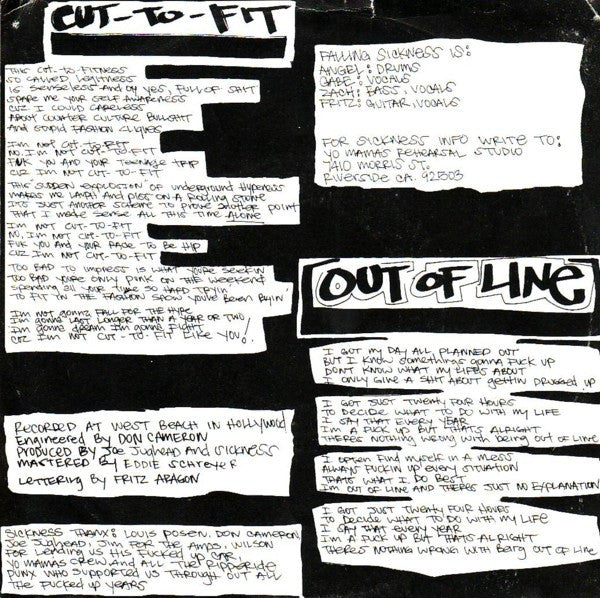 CUT-TO-FIT
THIS CUT-TO-FITNESS
SO CALLED LEGITNESS
IS SENSELESS AND OH YES, FULL OF SHIT
SPARE ME YOUR SELF AWARENESS
CUZ I COULD CARELESS
ABOUT COUNTER CULTURE BULLSHIT
AND STUPID FASHION CLIQUES
I'M NOT CUT-TO-FIT
NO, I'M NOT CUT-TO-FIT
FUK YOU AND YOUR TEENAGE TRIP
CUZ I'M NOT CUT-TO-FIT
THIS SUDDEN EXPLOSION OF UNDERGROUND HYPENESS
MAKES ME LAUGH AND PISS ON A ROLLING STONE
IT'S JUST ANOTHER SCHEME TO PROVE ANOTHER POINT
THAT I MADE SENSE ALL THIS TIME ALONE
I'M NOT CUT-TO-FIT
NO, I'M NOT CUT-TO-FIT
FUK YOU AND YOUR RACE TO BE HIP
CUZ I'M NOT CUT-TO-FIT
TOO BAD TO IMPRESS IS WHAT YOURE SEEKIN
TOO BAD YOURE ONLY PUNK ON THE WEEKEND
SPENDING ALL YOUR TIME SO HARD TRYIN'
TO FIT IN THE FASHION SHOW YOU'VE BEEN BUYIN'
I'M NOT GONNA FALL FOR THE HYPE
I'M GONNA LAST LONGER THAN A YEAR OR TWO
I'M GONNA DREAM I'M GONNA FIGHT
CUZ I'M NOT CUT-TO-FIT LIKE YOU!
RECORDED AT WEST BEACH IN HOLLYWOOD
ENGINEERED BY DON CAMERON
PRODUCED BY JOE JUGHEAD AND SICKNESS
MASTERED BY EDDIE SCHREYER
LETTERING BY FRITZ ARAGON
SICKNESS THANX: LOUIS POSEN, DON CAMERON,
JOE JUGHEAD, JIM FOR THE AMPS, WILSON
FOR LENDING US HIS FUCKED UP CAR,
YO MAMAS CREW AND ALL THE RIPPERSIDE
PUNX WHO SUPPORTED US THROUGH OUT ALL
THE FUCKED UP YEARS
FALLING SICKNESS IS:
ANGEL: DRUMS
GABE: VOCALS
ZACH: BASS, VOCALS
FRITZ: GUITAR, VOCALS
FOR SICKNESS INFO WRITE TO:
YO MAMAS REHEARSAL STUDIO
7410 MORRIS ST.
RIVERSIDE CA. 92503
OUT OF LINE
I GOT MY DAY ALL PLANNED OUT
BUT I KNOW SOMETHINGS GONNA FUCK UP
DONT KNOW WHAT MY LIFES ABOUT
I ONLY GIVE A SHIT ABOUT GETTIN DRUGGED UP
I GOT JUST TWENTY FOUR HOURS
TO DECIDE WHAT TO DO WITH MY LIFE
I SAY THAT EVERY YEAR
I'M A FUCK UP BUT THAT'S ALRIGHT
THERES NOTHING WRONG WITH BEING OUT OF LINE
I OFTEN FIND MYSELF IN A MESS
ALWAYS FUCKIN UP EVERY SITUATION
THATS WHAT I DO BEST
I'M OUT OF LINE AND THERE'S JUST NO EXPLANATION
I GOT JUST TWENTY FOUR HOURS
TO DECIDE WHAT TO DO WITH MY LIFE
I SAY THAT EVERY YEAR
I'M A FUCK UP BUT THATS ALRIGHT
THERES NOTHING WRONG WITH BEING OUT OF LINE